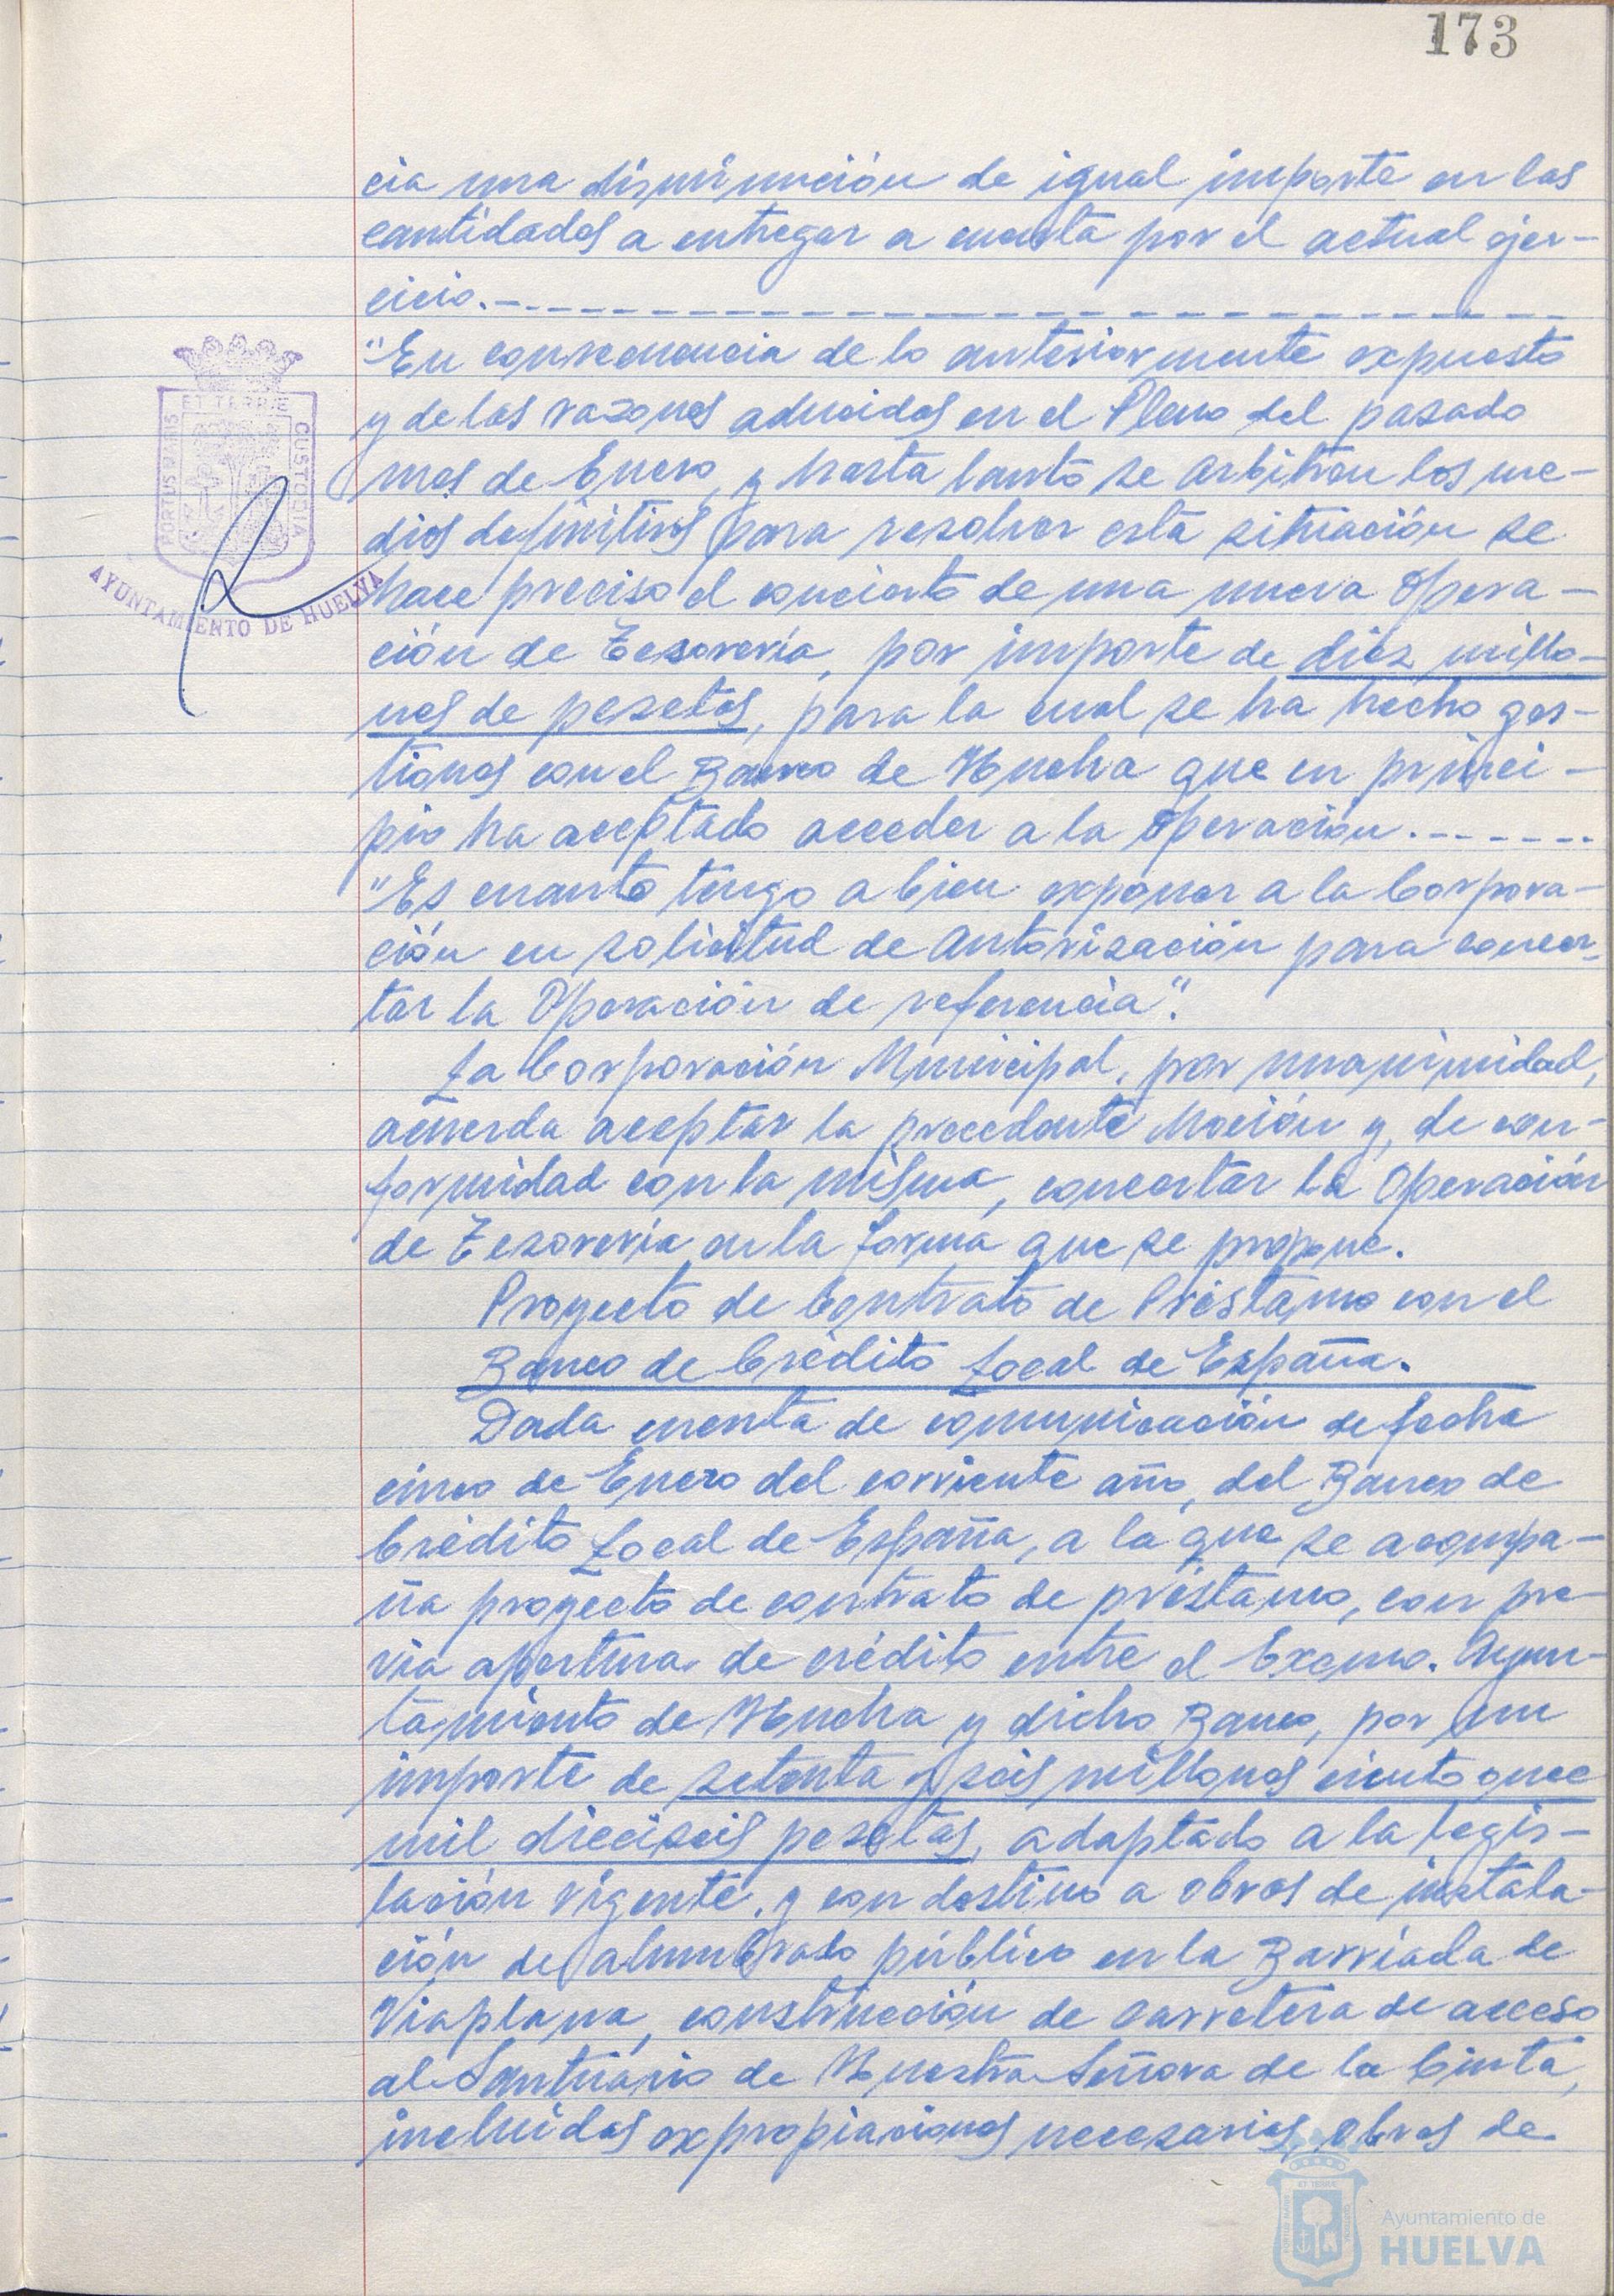 173
cia una disminución de igual importe en las
cantidades a entregar a cuenta por el actual ejer-
cicio.-
"En consecuencia de lo anteriormente expuesto
y de las razones aducidas en el Pleno del pasado
mes de Enero, y hasta tanto se arbitran los me-
dios definitivos para resolver esta situación se
hace preciso el concierto de una nueva Opera-
ción de Tesorería, por importe de diez millo-
nes de pesetas, para la cual se ha hecho ges-
tiones con el Banco de Huelva que en princi-
pio ha aceptado acceder a la Operación.-
"Es cuanto tengo a bien exponer a la Corpora-
ción en solicitud de autorización para concer-
tar la Operación de referencia".
La Corporación Municipal, por unanimidad,
acuerda aceptar la precedente Moción y, de con-
formidad con la misma, concertar la Operación
de Tesorería en la forma que se propone.
Proyecto de Contrato de Préstamo con el
Banco de Crédito Local de España.
Dada cuenta de comunicación de fecha
cinco de Enero del corriente año, del Banco de
Crédito Local de España, a la que se acompa-
ña proyecto de contrato de préstamo, con pre-
via apertura de crédito entre el Excmo. Ayun-
tamiento de Huelva y dicho Banco, por un
importe de setenta y seis millones ciento once
mil dieciseis pesetas, adaptado a la legis-
lación vigente, y con destino a obras de instala-
ción de alumbrado público en la Barriada de
Viaplana, construcción de carretera de acceso
al Santuario de Nuestra Señora de la Cinta,
incluidas expropiaciones necesarias, obras de
PORTUS MARIS
ET TERRAE
CUSTODIA
AYUNTAMIENTO DE HUELVA
Ayuntamiento de
HUELVA